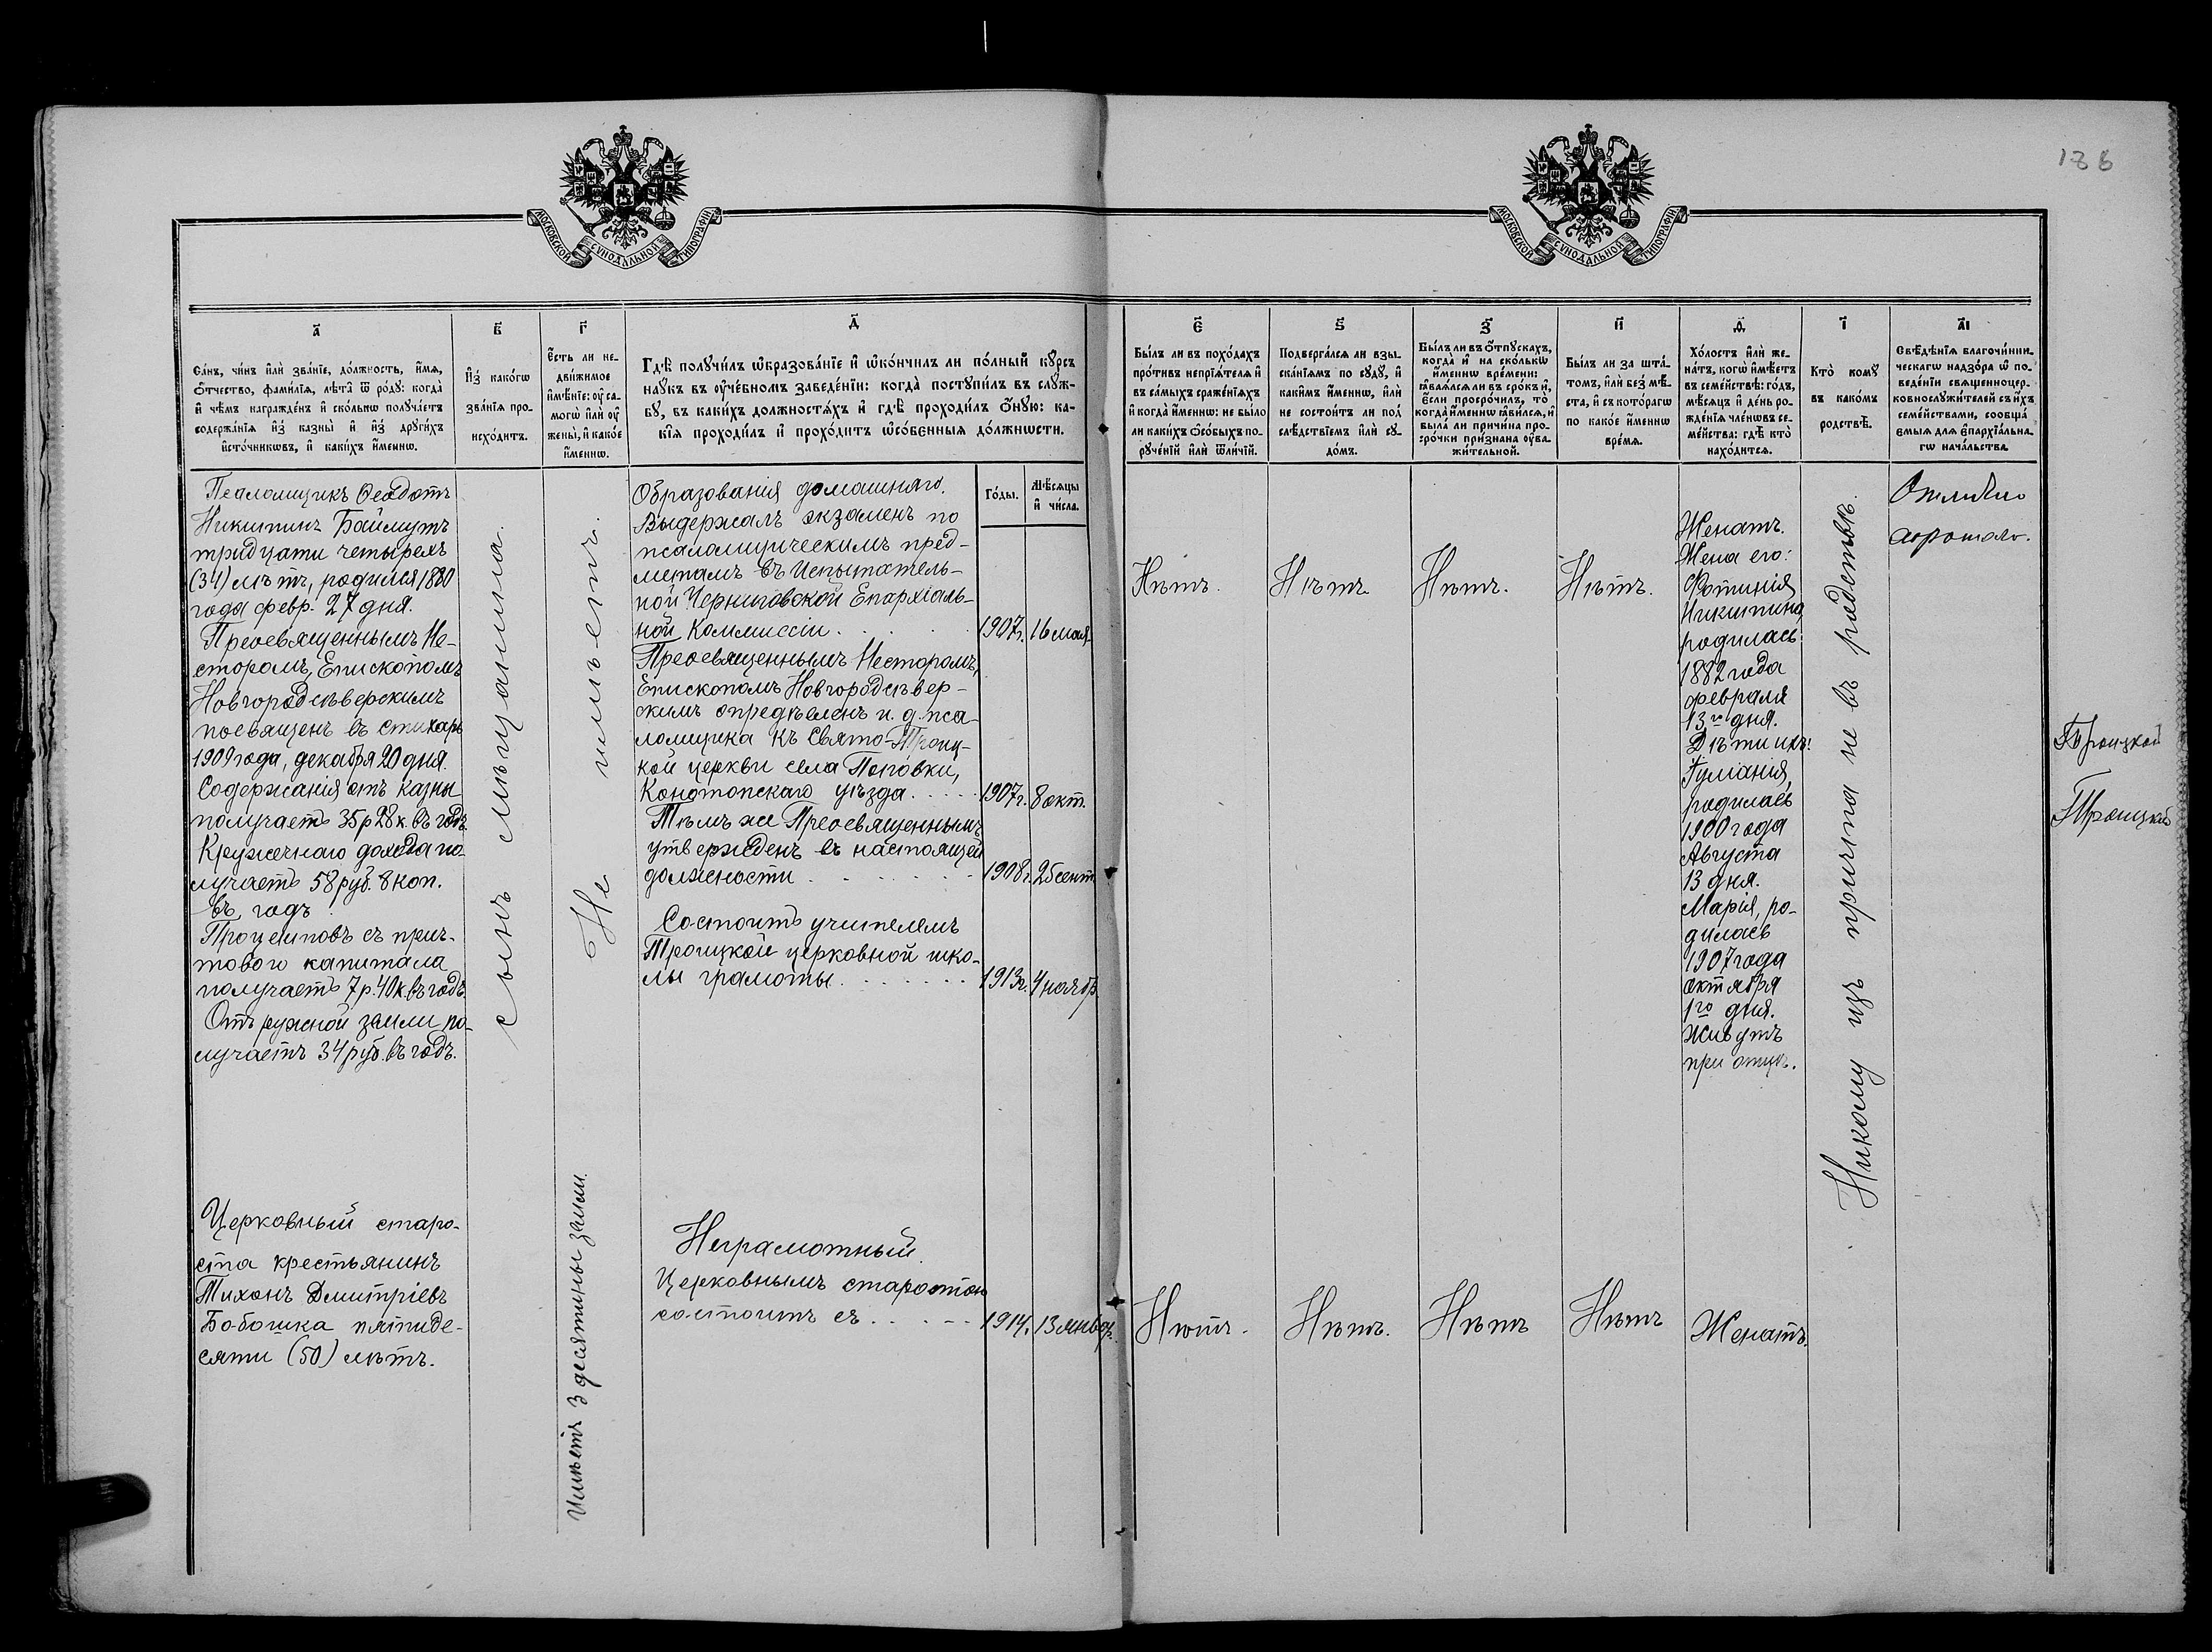 186
МОСКОВСКОЙ СѴНОДАЛЬНОЙ ТИПОГРАФІИ
МОСКОВСКОЙ СѴНОДАЛЬНОЙ ТИПОГРАФІИ
а҃
Са́нъ, чи́нъ и҆лѝ зва́нїе, до́лжность, и҆́мѧ,
ѻ҆́тчество, фами́лїѧ, лѣ́та ѿ ро́дꙋ: когда̀
и҆ чѣ́мъ награжде́нъ и҆ ско́лькѡ полꙋча́етъ
содержа́нїѧ и҆з̾ казны̀ и҆ и҆з̾ дрꙋги́хъ
и҆сто́чникѡвъ, и҆ каки́хъ и҆́меннѡ.
в҃
И҆з̾ како́гѡ
зва́нїѧ про-
исхо́дитъ.
г҃
Е҆́сть ли не-
дви́жимое
и҆мѣ́нїе: ᲂу҆ са-
могѡ̀ и҆лѝ ᲂу҆
жены̀, и҆ како́е
и҆́меннѡ.
д҃
Гдѣ̀ полꙋчи́лъ ѡ҆бразова́нїе и҆ ѡ҆ко́нчилъ ли по́лный кꙋ́рсъ
наꙋ́къ въ ᲂу҆че́бномъ заведе́нїи: когда̀ постꙋпи́лъ въ слꙋ́ж-
бꙋ, въ каки́хъ должностѧ́хъ и҆ гдѣ̀ проходи́лъ ѻ҆́нꙋю: ка-
кі̑ѧ проходи́лъ и҆ прохо́дитъ ѡ҆со́бенныѧ до́лжнѡсти.
Го́ды.
Мѣ́сѧцы
и҆ чи́сла.
є҃
Бы́лъ ли въ похо́дахъ
про́тивъ непрїѧ́телѧ и҆
въ са́мыхъ сраже́нїѧхъ
и҆ когда̀ и҆́меннѡ: не бы́ло
ли каки́хъ ѻ҆со́быхъ по-
рꙋче́нїй и҆лѝ ѿли́чїй.
ѕ҃
Подверга́лсѧ ли взы-
ска́нїѧмъ по сꙋдꙋ̀, и҆
каки́мъ и҆́меннѡ, и҆лѝ
не состои́тъ ли под̾
слѣ́дствїемъ и҆лѝ сꙋ-
до́мъ.
з҃
Бы́лъ ли въ ѻ҆́тпꙋскахъ,
когда̀ и҆ на ско́лькѡ
и҆́меннѡ вре́мени:
ꙗ҆влѧ́лсѧ ли въ сро́къ и҆,
є҆́сли просро́чилъ, то̀
когда̀ и҆́меннѡ ꙗ҆ви́лсѧ, и҆
была̀ ли причи́на про-
сро́чки при́знана ᲂу҆ва-
жи́тельной.
и҃
Бы́лъ ли за шта́-
томъ, и҆лѝ без̾ мѣ́-
ста, и҆ съ кото́рагѡ
по како́е и҆́меннѡ
вре́мѧ.
ѳ҃
Хо́лостъ и҆лѝ же-
на́тъ, когѡ̀ и҆мѣ́етъ
въ семе́йствѣ: го́дъ,
мѣ́сѧцъ и҆ де́нь ро-
жде́нїѧ чле́нѡвъ се-
ме́йства: гдѣ̀ кто̀
нахо́дитсѧ.
і҃
Кто̀ комꙋ̀
въ како́мъ
родствѣ̀.
а҃і
Свѣ́дѣнїѧ благочи́нни-
ческагѡ надзо́ра ѡ҆ по-
веде́нїи свѧщенноцер-
ковнослꙋжи́телей съ и҆́хъ
семе́йствами, сообща́-
емыѧ длѧ є҆парх̾їа́льна-
гѡ нача́льства.
Псаломщикъ Ѳеодотъ
Никитинъ Баймутъ
тридцати четырехъ
(34) лѣтъ, родился 1880
года февр. 27 дня.
Преосвященнымъ Не-
сторомъ, Епископомъ
Новгородсѣверскимъ
посвященъ въ стихарь
1909 года, декабря 20 дня.
Содержанія отъ казны
получаетъ 35 р 28 к. въ годъ.
Кружечнаго дохода по-
лучаетъ 58 руб. 8 коп.
въ годъ.
Процентовъ съ прич-
тового капитала
получаетъ 7 р. 40 к. въ годъ.
Отъ ружной земли по-
лучаетъ 34 руб. въ годъ.
сынъ мѣщанина.
Не имѣетъ.
Образованія домашняго.
Выдержалъ экзаменъ по
псаломщическимъ пред-
метамъ въ Испытатель-
ной Черниговской Епархіаль-
ной Коммиссіи . . . 1907 г. 16 мая
Преосвященнымъ Несторомъ,
Епископомъ Новгородсѣвер-
скимъ опредѣленъ и. д. пса-
ломщика къ Свято-Троиц-
кой церкви села Поповки,
Конотопскаго уѣзда . . . . 1907 г. 8 окт.
Тѣмъ же Преосвященнымъ
утвержденъ въ настоящей
должности . . . . . . 1908 г. 25 сент.
Состоитъ учителемъ
Троицкой церковной шко-
лы грамоты . . . . . . . 1913 г. 4 нояб.
Нѣтъ.
Нѣтъ.
Нѣтъ.
Нѣтъ.
Женатъ.
Жена его:
Фотинія
Никитина,
родилась
1882 года
февраля
13го дня.
Дѣти ихъ:
родилась
1900 года
Августа
13 дня.
Марія, ро-
дилась
1907 года
октября
1го дня.
Живутъ
при отцѣ.
Никому изъ причта не въ родствѣ.
Отлично
хорошаго.
Троицкой
Троицкой
Церковный старо-
ста крестьянинъ
Тихонъ Дмитріевъ
Бобошка пятиде-
сяти (50) лѣтъ.
Имѣетъ 3 десятины земли.
Неграмотный.
Церковнымъ старостою
состоитъ съ . . . . . 1914 г. 13 январ.
Нѣтъ.
Нѣтъ.
Нѣтъ
Нѣтъ
Женатъ.